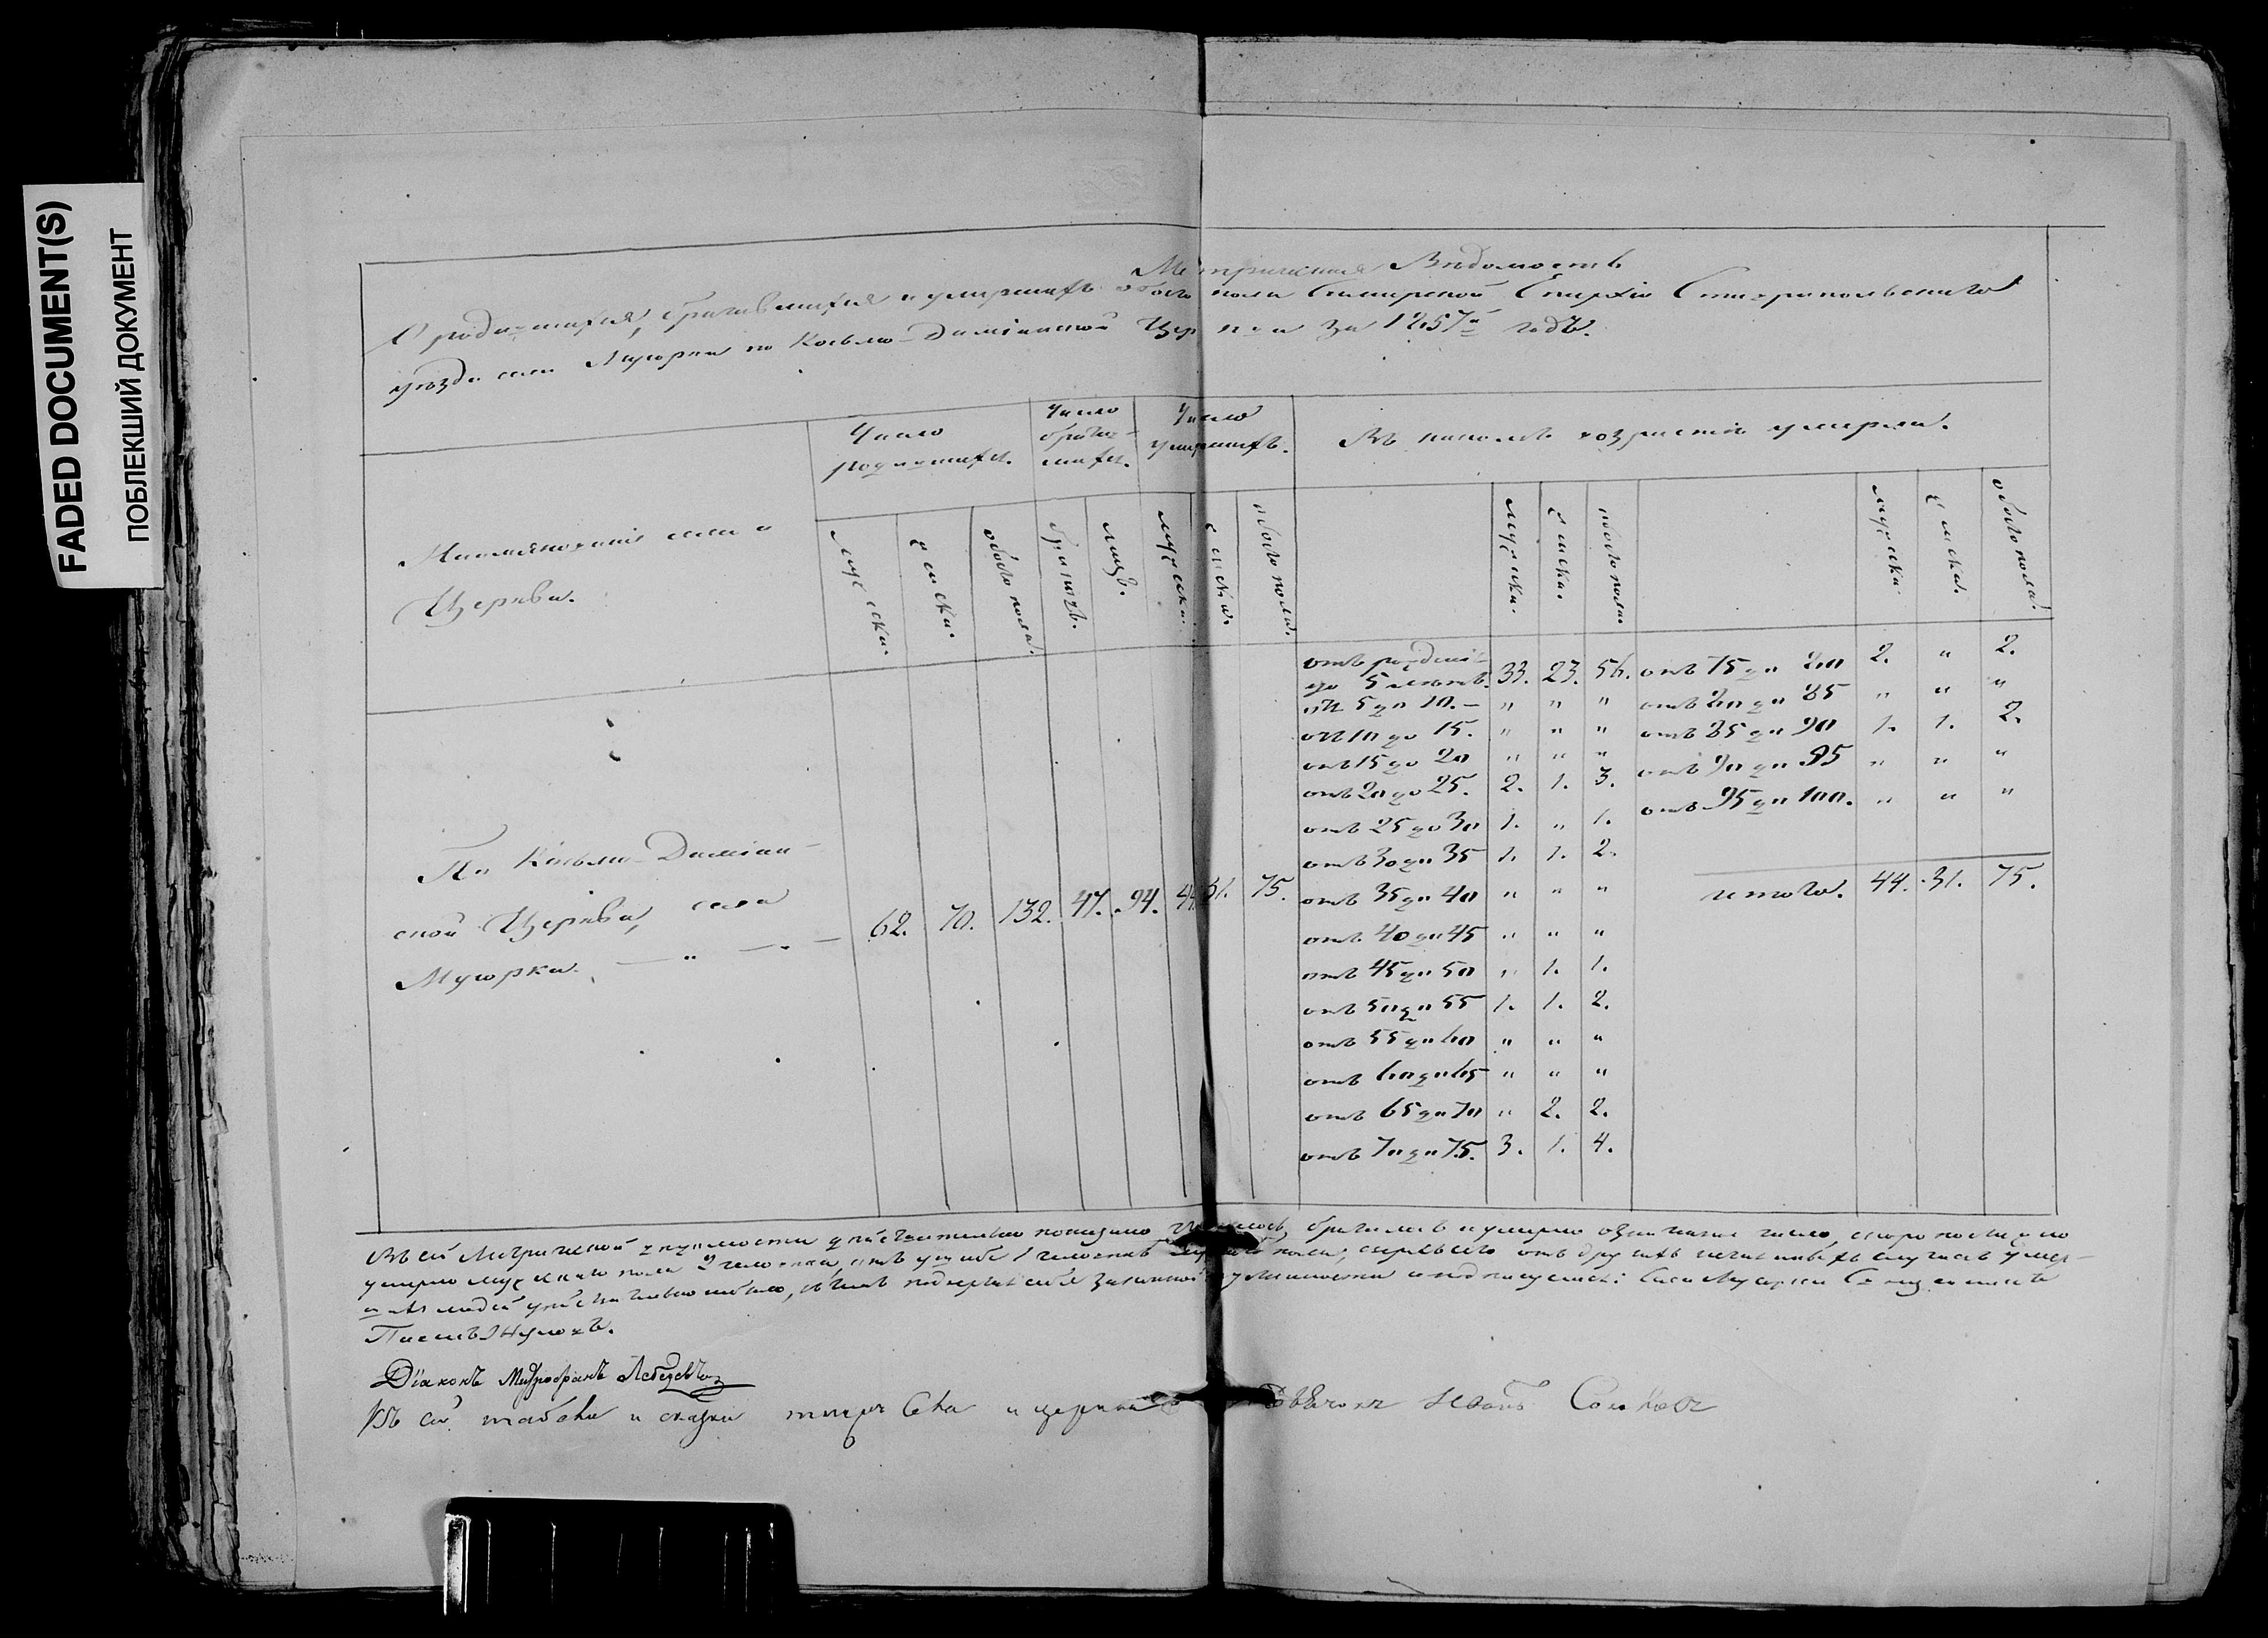 FADED DOCUMENT(S)
ПОБЛЕКШИЙ ДОКУМЕНТ
Метрическая Вѣдомость
О родившихся, бракѣ умершихъ обоего пола Самарской Епархіи Ставропольскаго
уѣзда села Мусорки по Козьмо-Даміанской Церкви за 1857й годъ.
Наименованіе села и
Церкви.
Число
родившихся.
Число
брачив-
шихся.
Число
умершихъ.
Въ какомъ возрастѣ умерли.
мужеска.
женска.
обоего пола.
браковъ.
лицъ.
мужеска.
женска.
обоего пола.
мужеска.
женска.
обоего пола.
мужеска.
женска.
обоего пола.
По Козьмо-Даміан-
ской Церкви, села
Мусорки. — " — . —
62. 70. 132. 47. 94. 44. 31. 75.
отъ рожденія
до 5 лѣтъ. 33. 23. 56.
отъ 5 до 10. — " " "
отъ 10 до 15. " " "
отъ 15 до 20 " " "
отъ 20 до 25. 2. 1. 3.
отъ 25 до 30 1. " 1.
отъ 30 до 35 1. 1. 2.
отъ 35 до 40 " " "
отъ 40 до 45 " " "
отъ 45 до 50 " 1. 1.
отъ 50 до 55 1. 1. 2.
отъ 55 до 60 " " "
отъ 60 до 65 " " "
отъ 65 до 70 " 2. 2.
отъ 70 до 75. 3. 1. 4.
отъ 75 до 80 2. " 2.
отъ 80 до 85 " " "
отъ 85 до 90 1. 1. 2.
отъ 90 до 95 " " "
отъ 95 до 100. " " "
итого. 44. 31. 75.
Въ сей Метрической вѣдомости дѣйствительно показано умерло число, скоропостижно
умерло мужескаго пола 2 человѣка, отъ 1 человѣкъ пола, отъ другихъ случаевъ умер-
людей въ чемъ законной и подписуемся: Села Мусорки Священникъ
Діаконъ Митрофанъ Лебедевъ
Къ сей и церкви Дьячокъ Иванъ